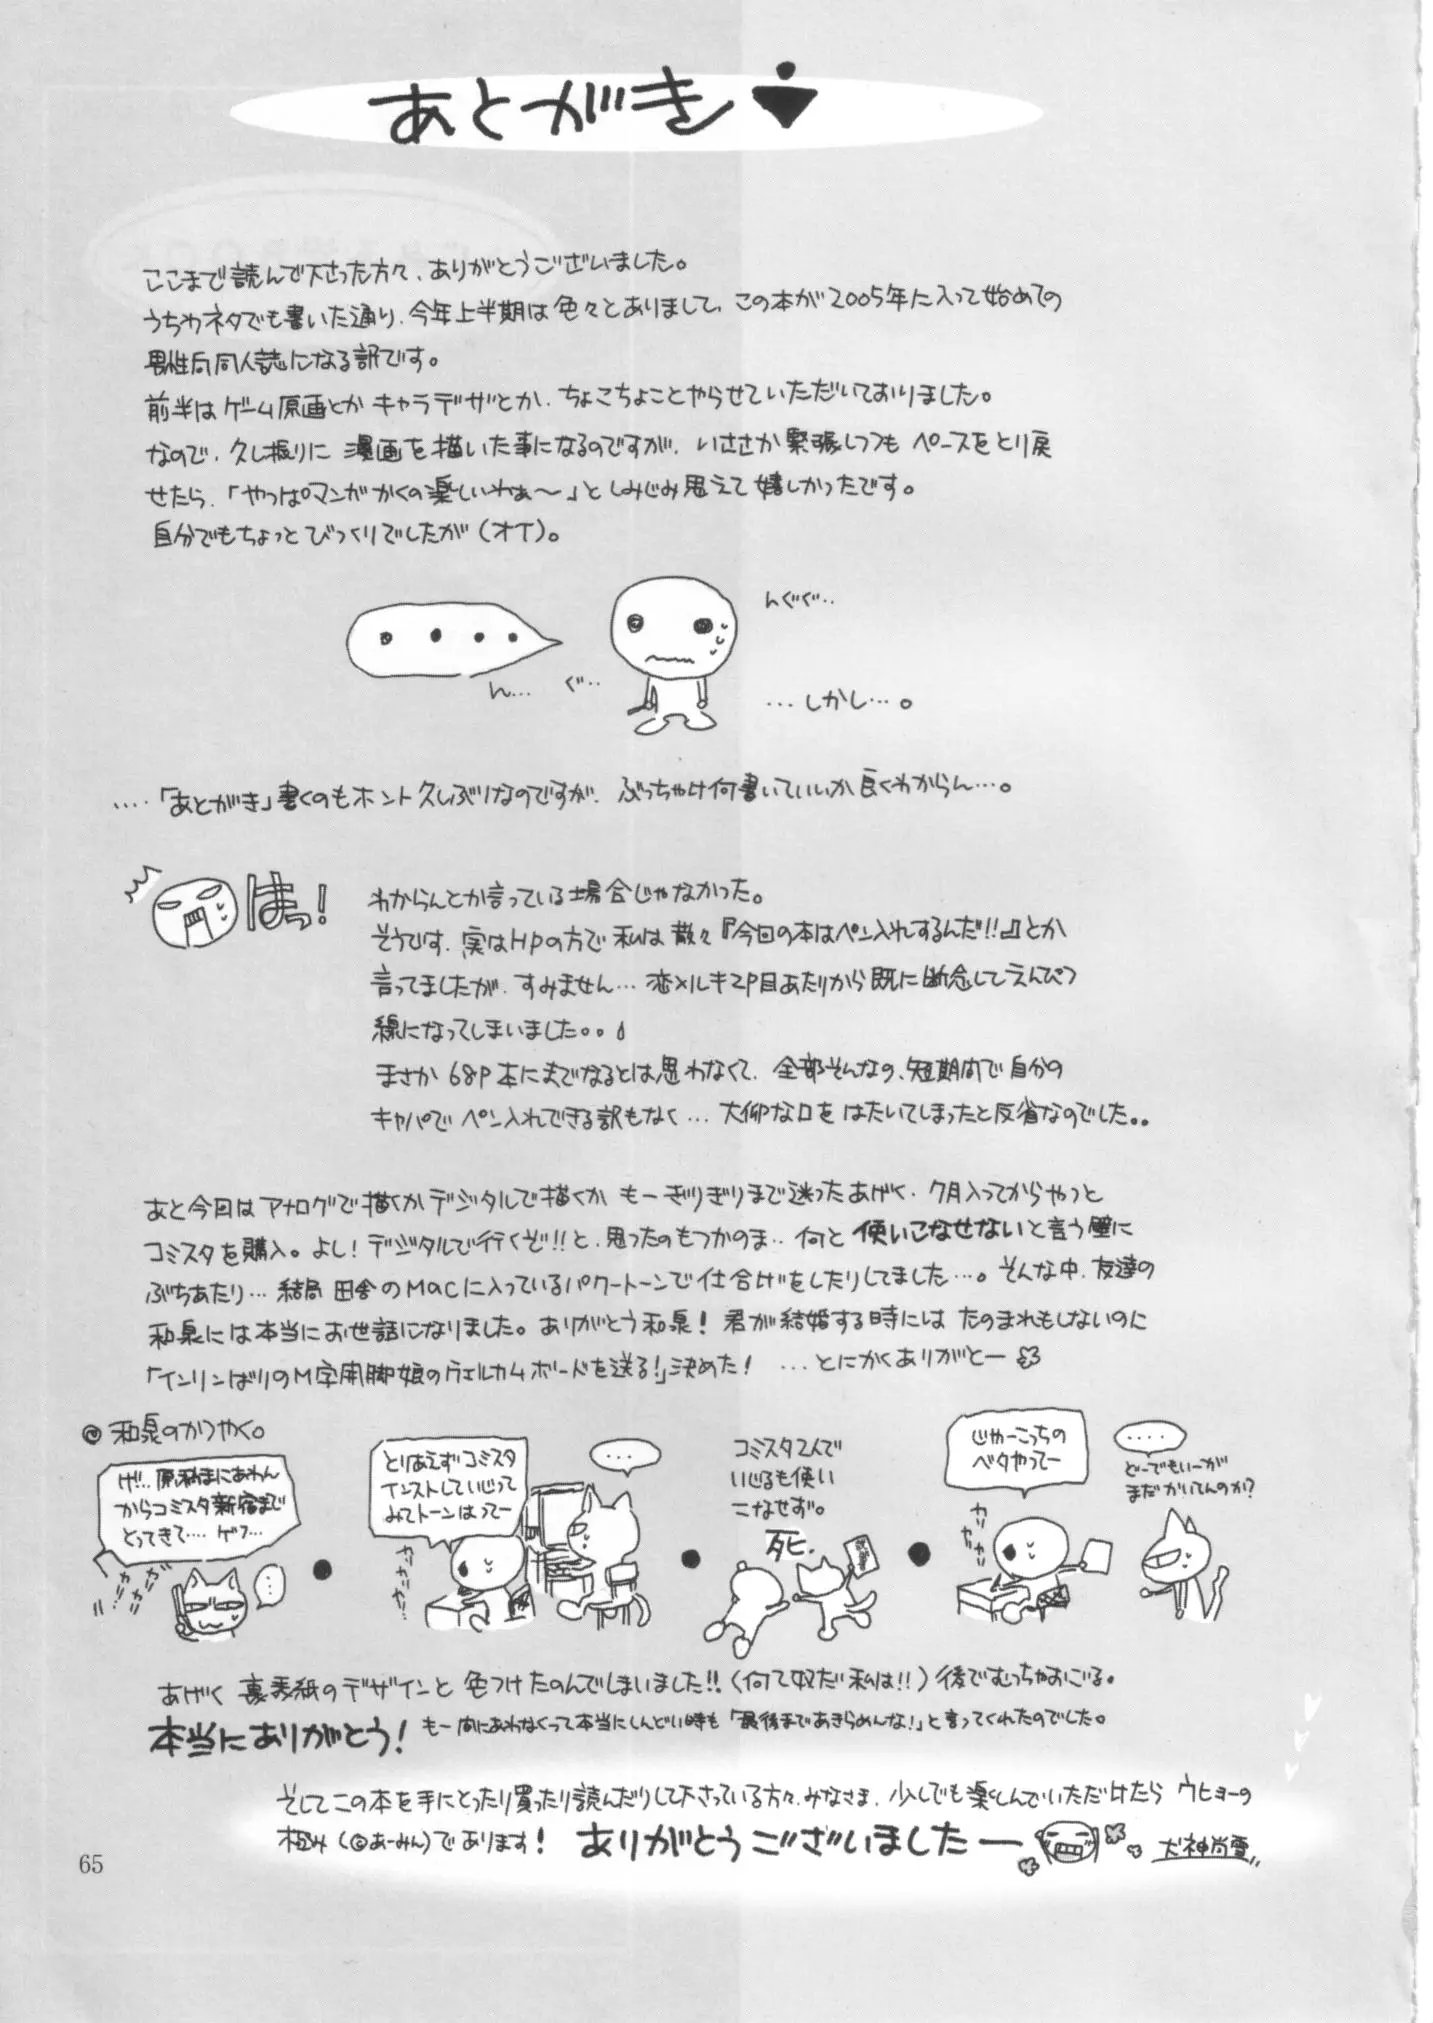 あとがき
ここまで読んで下さった方々、ありがとうございました。
うちわネタでも書いた通り、今年上半期は色々とありまして、この本が2005年に入って始めての
男性向同人誌になる訳です。
前半はゲーム原画とかキャラデザとか、ちょこちょことやらせていただいておりました。
なので、久し振りに漫画を描いた事になるのですが、いささか緊張しつつもペースをとり戻
せたら、「やっぱマンガかくの楽しいわぁ〜」としみじみ思えて嬉しかったです。
自分でもちょっとびっくりでしたが（オイ）。
んぐぐ‥
ん… ぐ‥
…しかし…。
‥‥「あとがき」書くのもホント久しぶりなのですが、ぶっちゃけ何書いていいか良くわからん…。
はっ!
わからんとか言っている場合じゃなかった。
そうです、実はHPの方で私は散々『今回の本はペン入れするんだ!!』とか
言ってましたが、すみません…恋メルキ2P目あたりから既に断念してえんぴつ
線になってしまいました。。
まさか68P本にまでなるとは思わなくて、全部そんなの、短期間で自分の
キャパでペン入れできる訳もなく…大仰な口をはたいてしまったと反省なのでした。。
あと今回はアナログで描くかデジタルで描くかもーぎりぎりまで迷ったあげく、7月入ってからやっと
コミスタを購入。よし!デジタルで行くぞ!!と、思ったのもつかのま‥何と使いこなせないと言う壁に
ぶちあたり…結局田舎のMacに入っているパワートーンで仕上げをしたりしてました…。そんな中、友達の
和泉には本当にお世話になりました。ありがとう和泉!君が結婚する時にはたのまれもしないのに
「インリンばりのM字開脚娘のウェルカムボードを送る!」決めた! …とにかくありがとー
◎和泉のかつやく。
げ!..原稿まにあわん
からコミスタ新宿まで
とってきて‥‥ゲフ…
…
とりあえずコミスタ
インストしていじって
みてトーンはってー
…
コミスタ2人で
いじるも使い
こなせず。
死.
じゃーこっちの
ベタやってー
‥‥
どーでもいーが
まだかいてんのか?
あげく裏表紙のデザインと色つけたのんでしまいました!!（何て奴だ私は!!）後でむっちゃおごる。
本当にありがとう! もー間にあわなくって本当にしんどい時も「最後まであきらめんな!」と言ってくれたのでした。
そしてこの本を手にとったり買ったり読んだりして下さっている方々、みなさま、少しでも楽しんでいただけたらウヒョーの
極み（©あーみん）であります! ありがとうございましたー 犬神尚雪
65